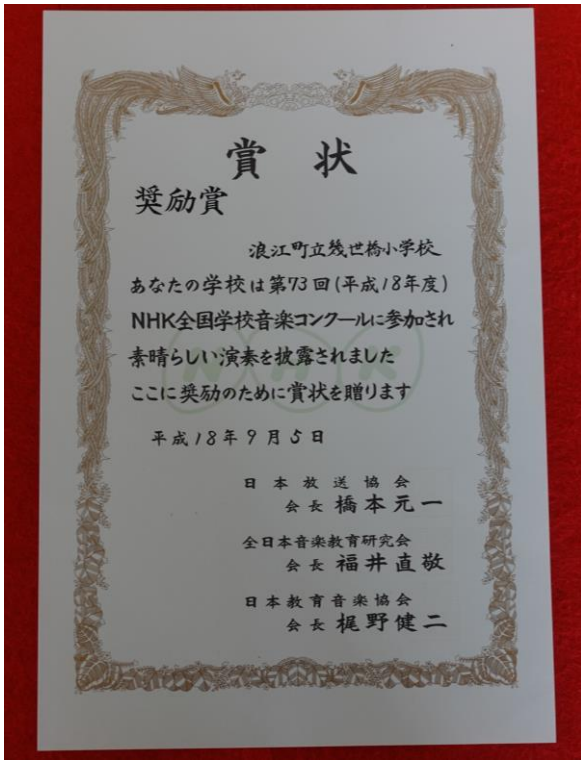 賞状
奨励賞
浪江町立幾世橋小学校
あなたの学校は第73回(平成18年度)
NHK全国学校音楽コンクールに参加され
素晴らしい演奏を披露されました
ここに奨励のために賞状を贈ります
NHK
平成18年9月5日
日本放送協会
会長 橋本元一
全日本音楽教育研究会
会長 福井直敬
日本教育音楽協会
会長 梶野健二